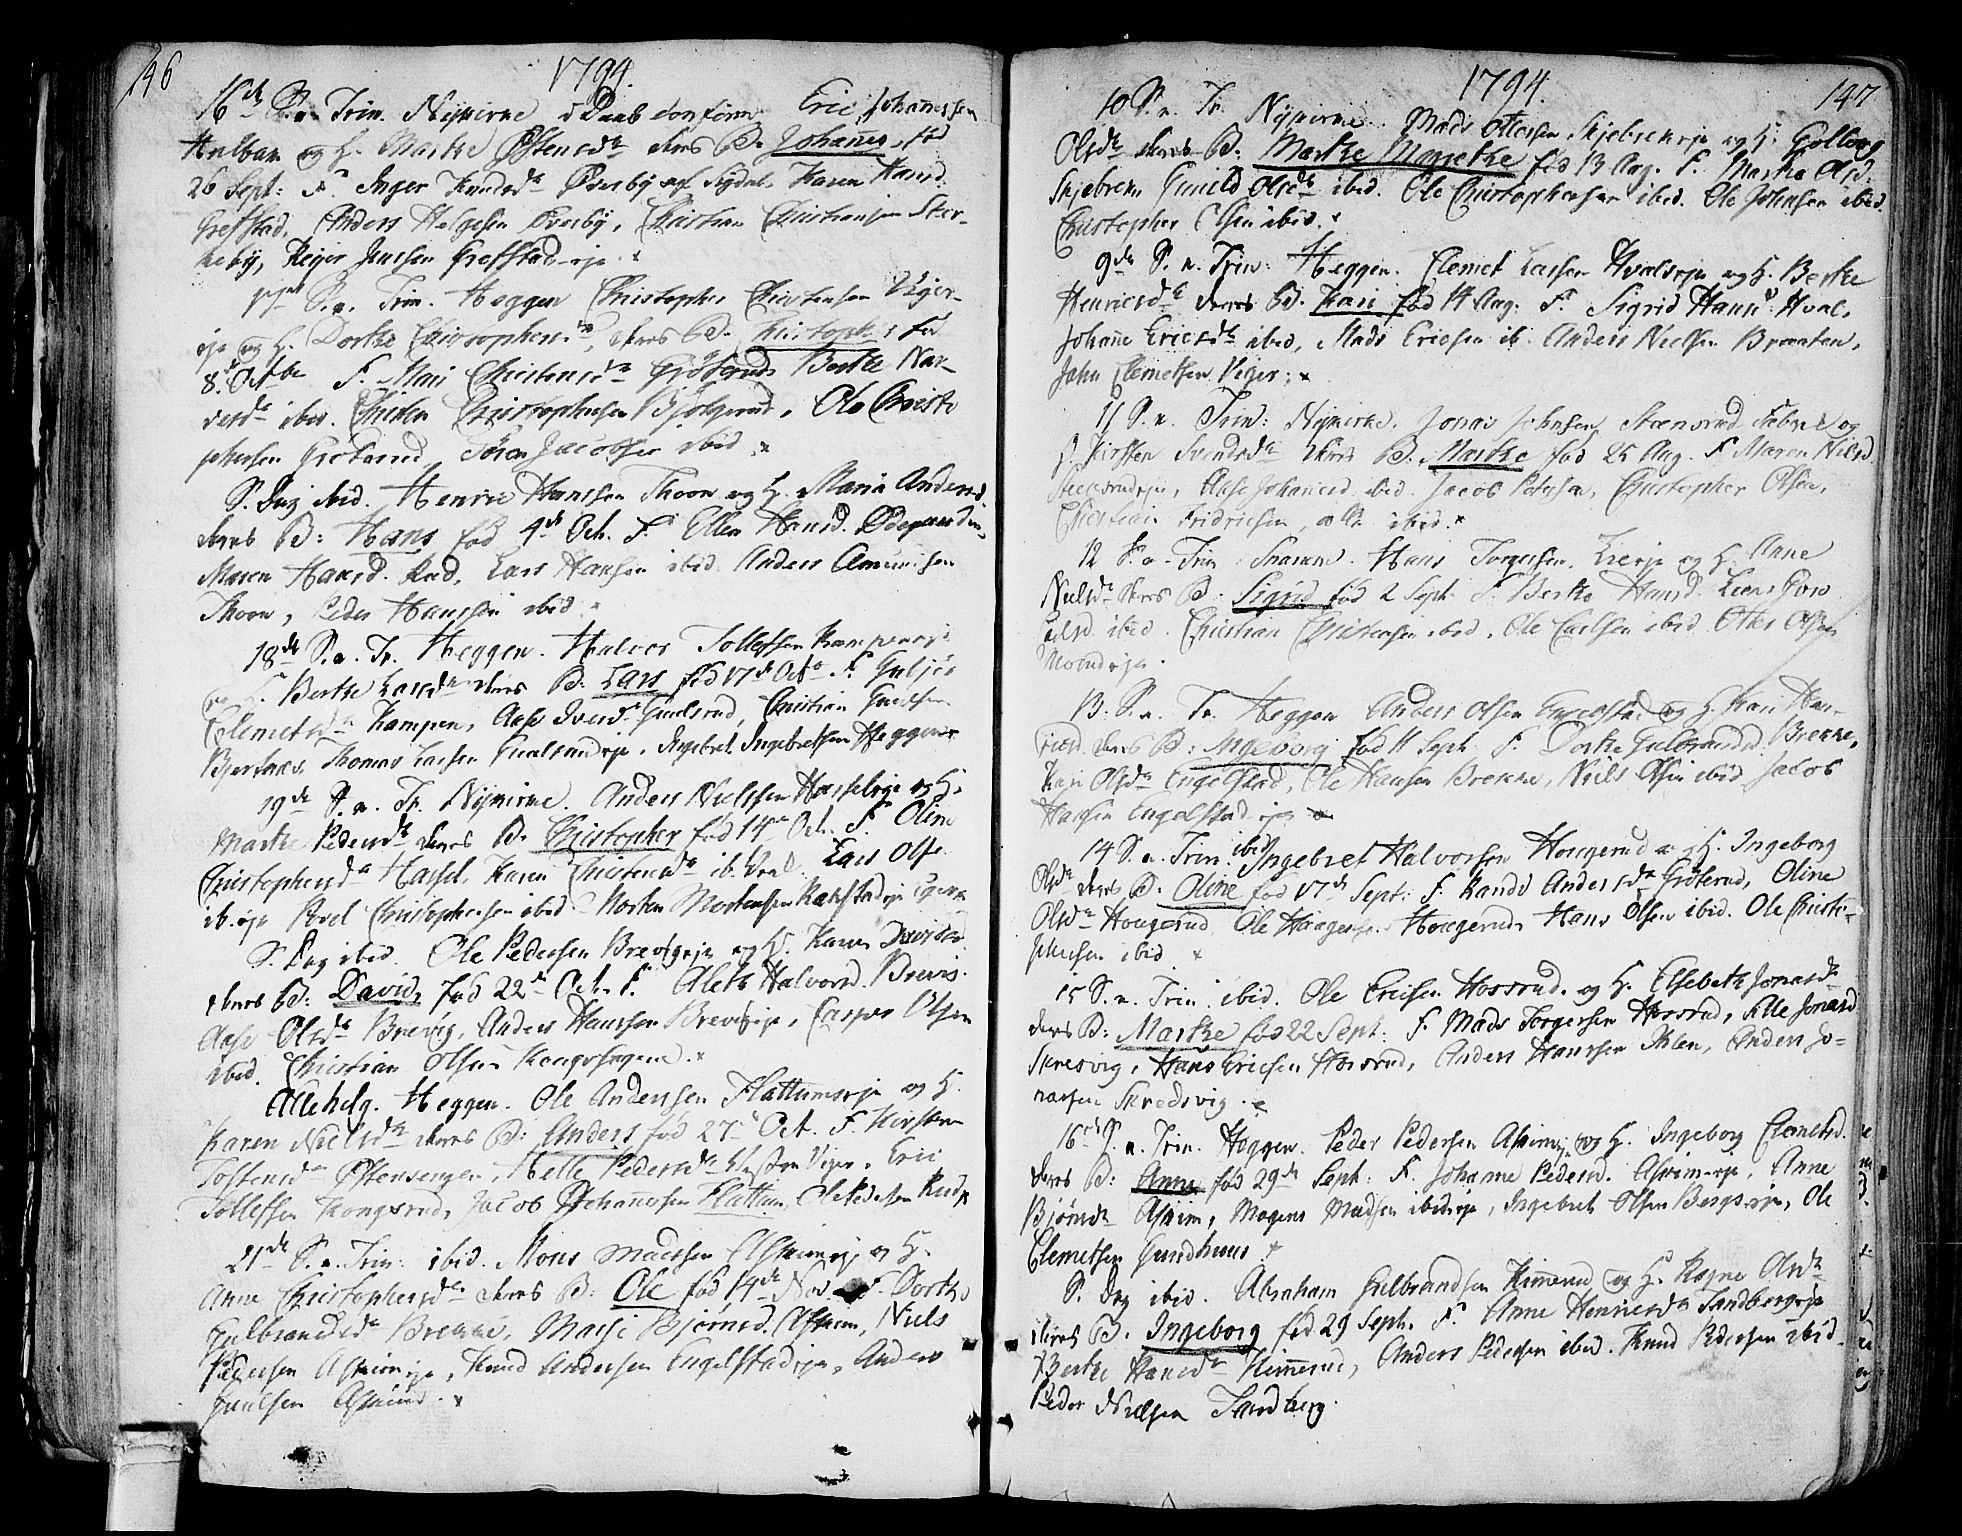 146
1794.
16de S. n. Trin. Nykirke d. Daab confirm. Eric Johannessen
og H. Marthe Østensdr deres B. Johannes fød
26 Sept: F. Inger Knudsdr Øverby af Sigdal, Karen Hansd.
Grefstad, Anders Helgesen Øverby, Christian Christiansen Ster-
keby, Reijer Jensen Grefstad-eje
17de S. n. Trin. Heggen Christopher Christensen Viger-
eje og H. Dorthe Christophersdr, deres B. Christopher fød
8. Octbr F. Mari Christensdr Grøterud, Berthe Nar-
vesdr ibid. Christen Christophersen Bjølgerud, Ole Christo-
phersen Grøterud Søren Jacobsen ibid
S. Dag ibid. Henric Hanssen Thoon og H. Maria Andersd.
deres B: Hans fød 4de Oct. F. Ellen Hansd. Ødegaarden,
Maren Hansd. Rud, Lars Hansen ibid Anders Amundsen
Thoon, Peder Hanssen ibid.
18de S. n. Tr. Heggen. Halvor Tollefsen Kampeneje
og H. Berthe Larsdr deres B. Lars fød 17de Oct. F. Gubjør
Clemetsdr Kampen, Aase Iversdr Gunlsrud, Christian
Bjertnæs, Thomas Larsen eje, Ingebret Ingebretsen Heggen
19de S. n. Tr. Nykirke. Anders Nielsen Hasseleje og H.
Marthe Pedersdr deres B. Christopher fød 14de Oct. F. Oline
Christophersdr Hassel, Karen Christensdr ib. Lars Olse
ib. eje Poul Christophersen ibid Morten Mortensen
S. Dag ibid. Ole Pedersen Brevigeje og H. Karen Davidsd
deres B: David, fød 22de Oct. F. Aleth Halvorsd. Brevig.
Aase Olsdr Brevig, Anders Hanssen Brevigeje, Casper Olsen
ibid. Christian Olsen Kongshogene.
Allehelg. Heggen. Ole Andersen Flattumseje og H.
Karen Nielsdr deres B: Anders fød 27de Oct. F. Kirsten
Tostensdr Østensengen, Helle Pedersdr Viger, Eric
Tollefsen Kongsrud, Jacob Johannesen Flattum, Ole Pedersen
21de S. n. Trin: ibid. Mons Madssen Askimeje og H.
Anne Christophersdr deres B: Ole fød 14de Nov. F. Dorthe
Gulbrandsdr Brekke, Marsi Bjørnsd. Askim, Niels
Pedersen Askimeje, Knud Andersen Engelstadeje, Anders
Paulsen Askim.
1794.
147
10 S. n. Tr. Nykirke. Mads Ottesen Skjebrekeje og H. Gollaug
Olsdr deres B: Marthe Margrethe fød 13 Aug. F. Marthe Olsd.
Skjebrek Gunild Olsdr ibid. Ole Christophersen ibid. Ole Johnsen ibid.
Christopher Olsen ibid.
9de S. n. Trin: Heggen. Clemet Larsen Hvalseje og H. Berthe
Henricsdr deres B. Kari fød 14 Aug. F. Sigrid Hansd: Hval,
Johanne Ericsdr ibid, Mads Ericsen ib. Anders Nielsen Braaten,
John Clemetsen Viger;
11 S. n. Trin: Nykirke. Jonas Johnsen Steensrud Fabric og
H Kirsten Svendsdr deres B. Marthe fød 25 Aug. F Maren Nilsd
Steensrudeje, Aase Johannesd. ibid. Jacob Petersen, Christopher Olsen,
Christian Fridricsen, alle ibid.
12 S. n. Trin: Snarum. Hans Torgersen Liereje og H. Anne
Nielsdr deres B. Sigrid fød 2 Sept. F. Berthe Hansd. Lien
Carlsd ibid. Christian Christensen ibid, Ole Carlsen ibid. Otter Olsen
Moeneje.
13. S. n. Tr. Heggen Anders Olsen Engelstad og H. Kari Han-
deres B: Ingeborg fød 11 Sept. F. Dorthe Gulbrandsd. Brekke,
Kari Olsdr Engelstad, Ole Hansen Brekke, Niels Olsen ibid Jacob
Hansen Engelstad eje
14 S. n. Trin: ibid Ingebret Halvorsen Hougerud og H. Ingeborg
Olsdr deres B. Oline fød 17de Sept: F. Randi Andersdr Grøterud, Oline
Olsdr Hougerud, Ole Haagensen Hougerud, Hans Olsen ibid. Ole Christo-
phersen ibid
15 S. n. Trin: ibid. Ole Ericsen Horsrud. og H. Elsebeth Jonasdr
deres B: Marthe fød 22 Sept: F. Mads Torgersen Horsrud, Alle Jonasd
Skredsvig, Hans Ericsen Horsrud, Anders Hanssen Ihlen, Anders Jo-
nassen Skredsvig.
16de S. n. Trin. Heggen. Peder Pedersen Askimeje og H. Ingeborg Clemetsd.
deres B: Anne fød 29de Sept: F. Johanne Pedersd. Askim-eje, Anne
Bjørnsdr Askim, Mogens Madsen ibid eje, Ingebret Olsen Bergseje, Ole
Clemetsen Gundhuus
S. Dag ibid. Abraham Gulbrandsen Kimerud og H. Ragne Olsdr
deres B. Ingeborg fød 29 Sept. F. Anne Henricsdr Sandbergeje
Berthe Hansdr Kimerud, Anders Pedersen ibid. Knud Pedersen ibid.
Peder Nielsen Sandberg.